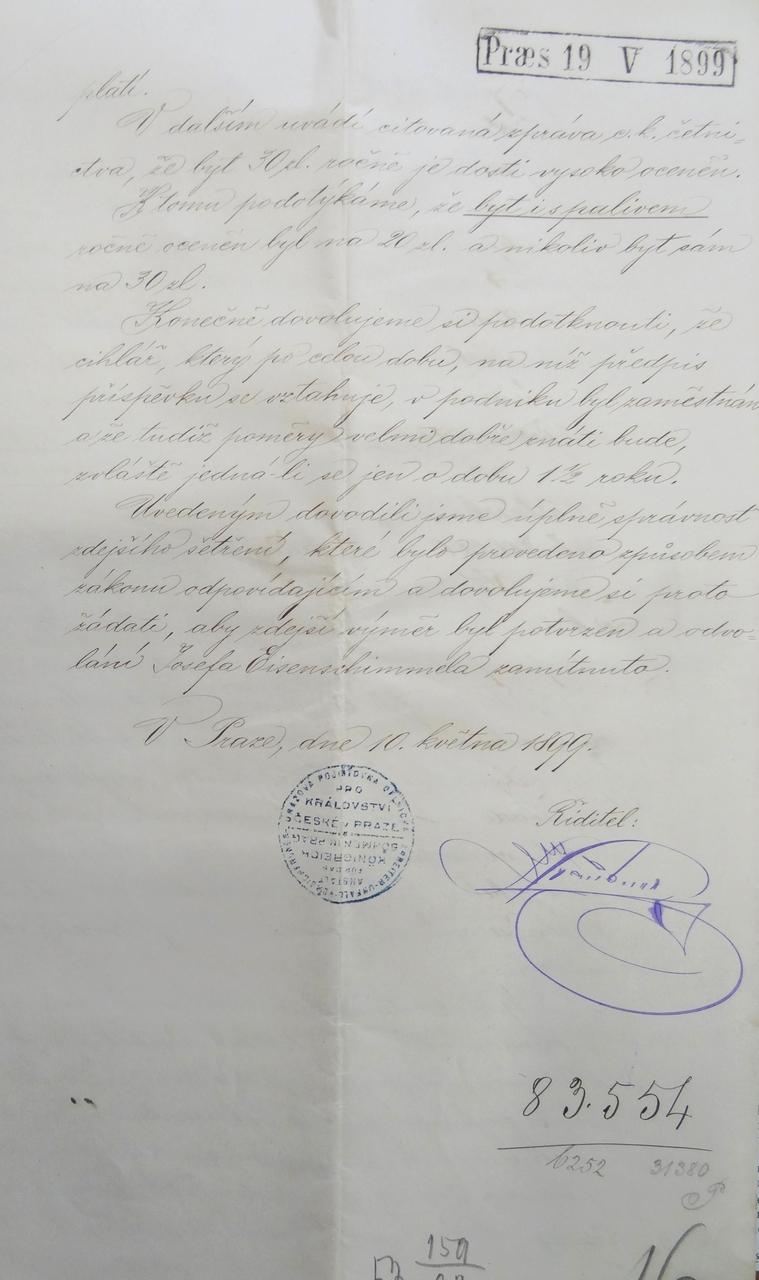 Præs 19 V 1899
platí.
V dalším uvádí citovaná zpráva c.k. četni=
ctva, že byt 30 zl. ročně je dosti vysoko oceněn.
K tomu podotýkáme, že byt i s palivem
ročně oceněn byl na 20 zl. a nikoliv byt sám
na 30 zl.
Konečně dovolujeme si podotknouti, že
cihlář, který po celou dobu, na níž předpis
příspěvku se vztahuje, v podniku byl zaměstnán
a že tudíž poměry velmi dobře znáti bude,
zvláště jedná-li se jen o dobu 1 ½ roku.
Uvedeným dovodili jsme úplně správnost
zdejšího šetření, které bylo provedeno způsobem
zákonu odpovídajícím a dovolujeme si proto
žádati, aby zdejší výměr byl potvrzen a odvo=
lání Josefa Eisenschimmela zamítnuto.
V Praze, dne 10. května 1899.
ÚRAZOVÁ POJIŠŤOVNA DĚLNICKÁ
PRO
KRÁLOVSTVÍ
ČESKÉ V PRAZE
BÖHMEN IN PRAG
KÖNIGREICH
FÜR DAS
ANSTALT
ARBEITER-UNFALL-VERSICHERUNGS
Ředitel:
83.554
6252 31380
159
53
16